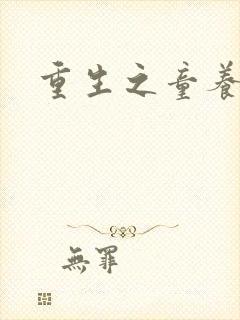 重生之童養
無罪